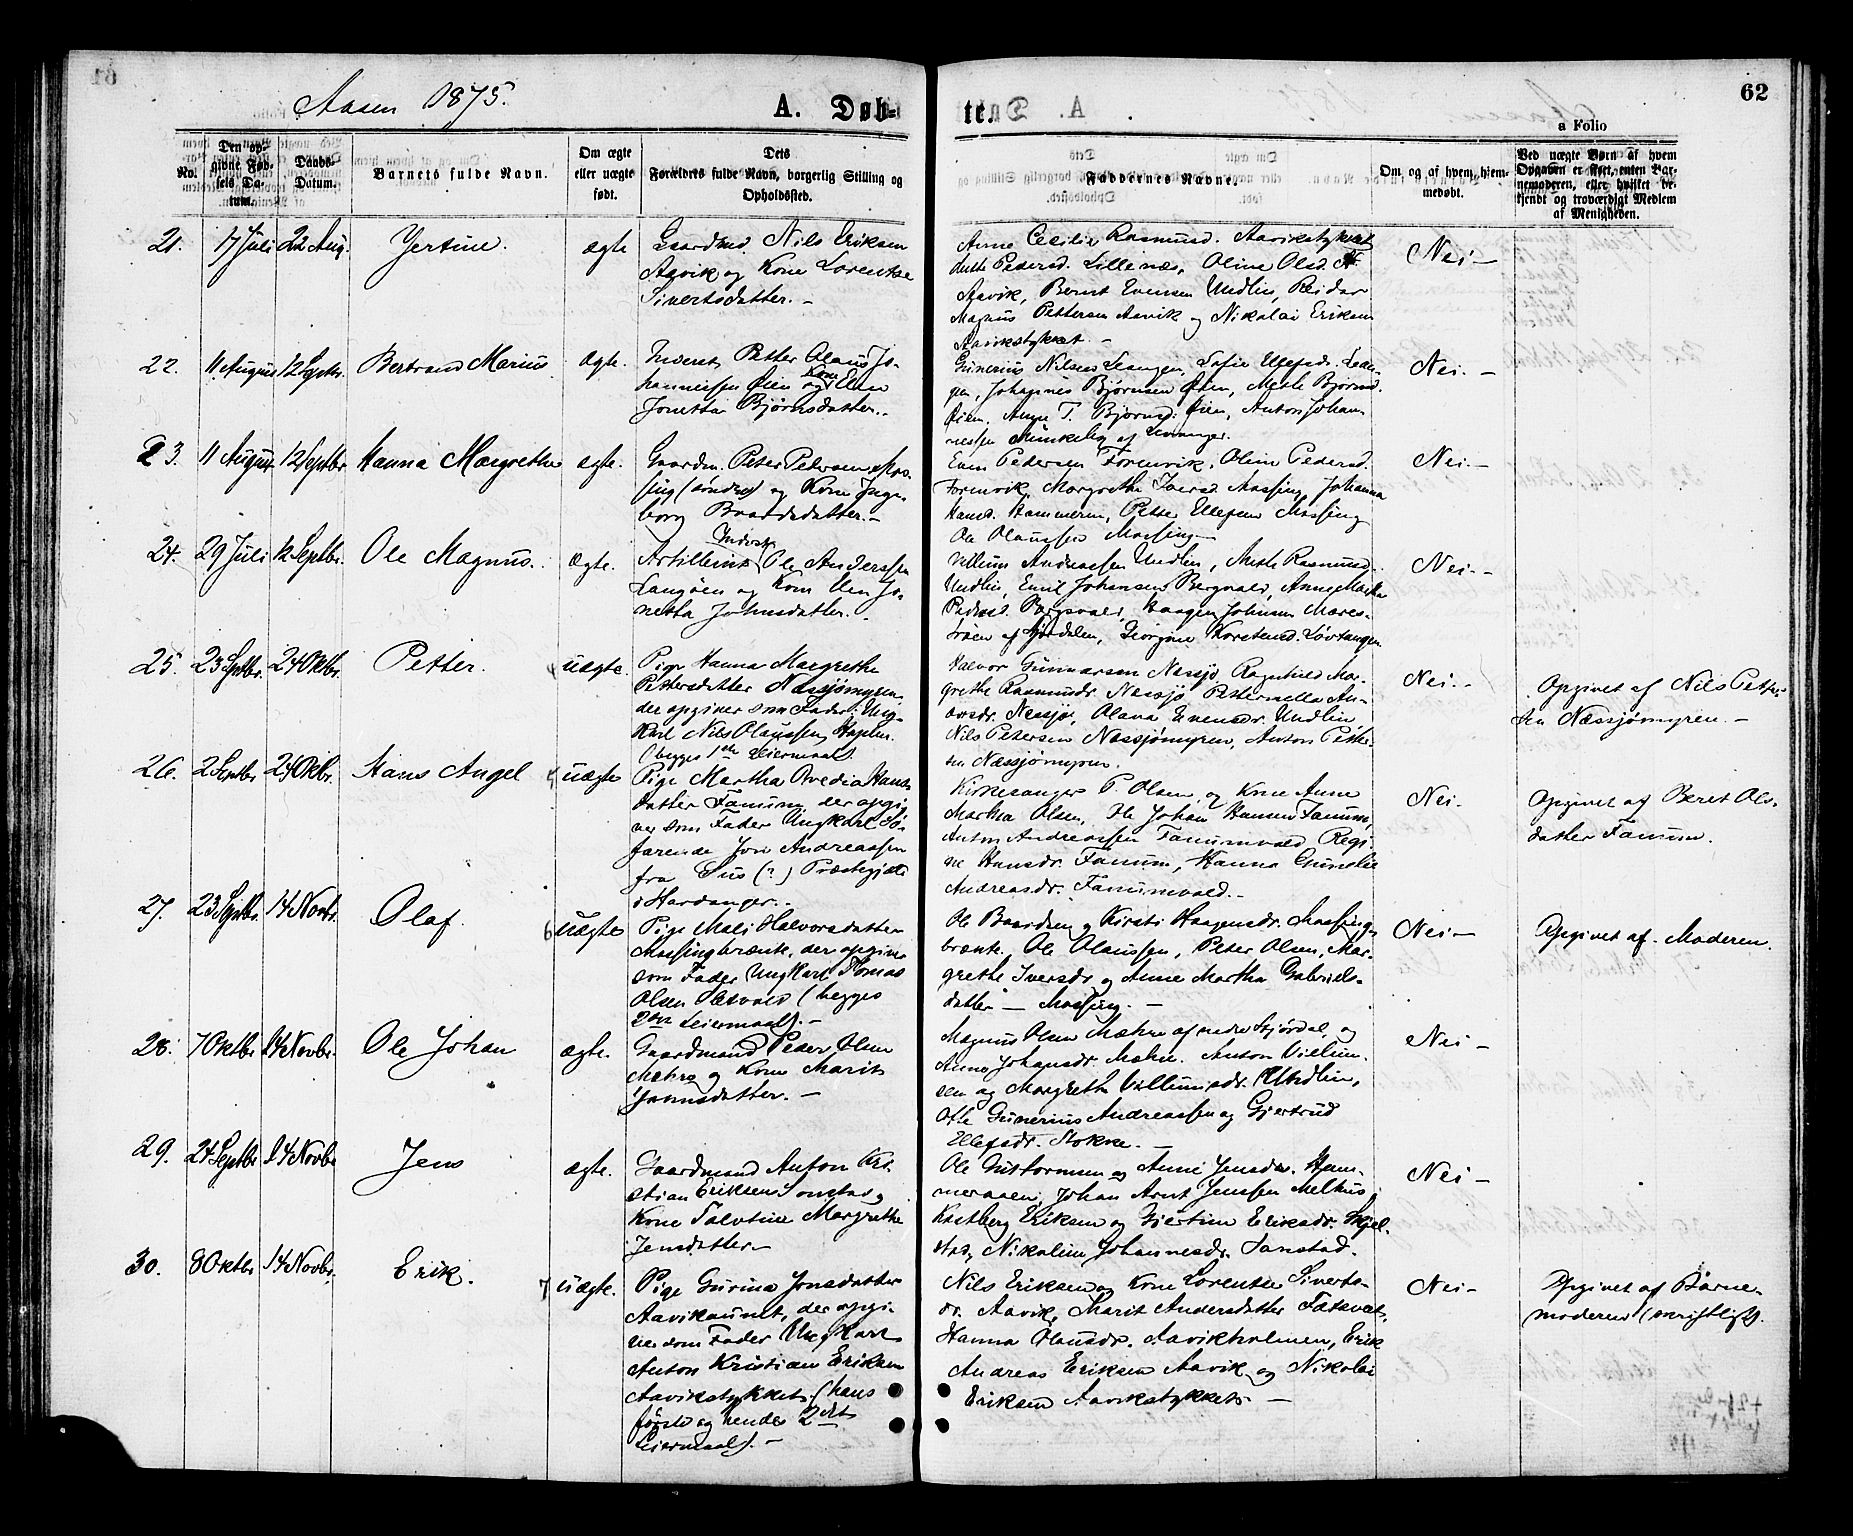 Aasen 1875.
A. Døb-
te.
62
a Folio
No.
Den op-
givne Fød-
sels Da-
tum.
Daabs-
Datum.
Barnets fulde Navn.
Om ægte
eller uægte
født.
Dets
Forældres fulde Navn, borgerlig Stilling og
Opholdssted.
Faddernes Navne.
Om og af hvem hjem-
medøbt.
Ved uægte Børn af hvem
Opgaven er skeet, enten Bar-
nemoderen, eller hvilket be-
kjendt og troværdigt Medlem
af Menigheden.
21. 17 Juli 22 Aug. Jertine. ægte
Gaardmd Nils Eriksen
Aavik og Kone Lorentse
Sivertsdatter. –
Anne Cecilie Rasmusd. Aavikstykket
Pedersd. Lillenæs, Oline Olsd.
Aavik, Bernt Evensen Undlin, Reidar
Magnus Pettersen Aavik og Nikolai Eriksen
Aavikstykket –
Nei –
22. 11 August 12 Septbr. Bertrand Marius ægte.
Inderst Petter Olaus Jo-
hannessen Øien og Kone Elen
Jonetta Bjørnsdatter.
Grinerius Nilsen Leangen, Sofie Ellefsdr. Lean-
gen, Johannes Bjørnsen Øien, Mette Bjørnsd.
Øien, Anne T. Bjørnsd. Øien, Anton Johan-
nessen Munkeby af Levanger.
Nei. –
23. 11 August 12 Septbr Hanna Margrethe ægte.
Gaardm. Peter Petersen Mos-
sing (søndre) og Kone Inge-
borg Baardsdatter. –
Even Pedersen Fornvik, Oline Pedersd.
Fornvik, Margrethe Iversd. Mossing, Johanna
Hansd. Hammeren, Petter Ellefsen Mossing
Ole Olaussen Mossing –
Nei. –
24. 29 Juli 12 Septbr. Ole Magnus. ægte.
Inderst
Artillerist Ole Anderssen
Langøen og Kone Elen Jo-
netta Johnsdatter.
Villum Andreassen Undlin, Mette Rasmusd.
Undlin, Emil Johansen Bergvald, Anne Marta
Pedersd. Bergsvald, Haagen Johnsen Mores-
trøen af Stjørdalen, Georgine Karstensd. Løvtangen
Nei. –
25. 23 Septbr. 24 Oktbr. Petter. uægte
Pige Hanna Margrethe
Pettersdatter Næssjømyren,
der opgiver som Fader: Ung-
karl Nils Olaussen Hoplen
(begges 1ste Leiermaal.
Halvor Gunnarsen Nessjø, Ragnhild Mar-
grethe Rasmusdr. Nessjø, Petternella An-
dersdr. Nessjø, Olava Evensdr. Undlin,
Nils Petersen Næssjømyren, Anton Petter-
sen Næssjømyren.
Nei. –
Opgivet af Nils Petter-
sen Næssjømyren. –
26. 2 Septbr 24 Oktbr. Hans Angel uægte
Pige Martha Ovedia Hans-
datter Fanum, der opgi-
ver som Fader Ungkarl Sø-
farende Jon Andreassen
fra Sus (?) Præstegjæld
i Hardanger. –
Kirkesanger P. Olsen og Kone Anne
Martha Olsen, Ole Johan Hansen Fanum,
Anton Andreassen Fanumvald, Regi-
ne Hansdr. Fanum, Hanna Gunelie
Andreasdr. Fanumvald. –
Nei.
Opgivet af Beret Ols-
datter Fanum.
27. 23 Septbr. 14 Novbr. Olaf. 6 uægte
Pige Mali Halvorsdatter
Mossingbrænte, der opgiver
som Fader Ungkarl Tomas
Olsen (begges
2det Leiermaal). –
Ole Baardsen og Kirsti Haagensdr. Mossing-
brænte, Ole Olaussen, Peter Olsen, Mar-
grethe Iversdr og Anne Martha Gabriels-
datter – Mossing. –
Nei –
Opgivet af Moderen.
28. 7 Oktbr 14 Novbr. Ole Johan ægte.
Gaardmand Peder Olsen
Mæhre og Kone Marit
Jonnsdatter. –
Magnus Olsen Mæhre af nedre Stjørdal, og
Anne Johansdr. Mæhre. Anton Villum-
sen og Margrethe Villumsdr. Undlin,
Ole Grinerius Andreassen og Gjertrud
Ellefsdr. Stokke. –
Nei –
29. 24 Septbr 14 Novbr Jens ægte.
Gaardmand Anton Kri-
stian Eriksen Sonstad og
Kone Salvtine Margrethe
Jensdatter –
Ole Guttormsen og Anne Jensdr. Ham-
meraaen, Johan Arnt Jenssen Melhus,
Kastberg Eriksen og Gjertine Eriksdr. Skjel-
stad, Nikoline Johannesdr. Sonstad.
Nei –
30. 8 Oktbr 14 Novbr. Erik. 7 uægte.
Pige Gurina Jonsdatter
Aavikaunet, der opgi-
ver som Fader Ungkarl
Anton Kristian Eriksen
Aavikstykket (hans
første og hendes 2det
Leiermaal). –
Nils Eriksen og Kone Lorentse Siverts-
dr. Aavik, Marit Andersdatter Fætsvet,
Hanna Olausdr. Aavikholmen, Erik
Andreas Eriksen Aavik og Nikolai
Eriksen Aavikstykket –
Nei –
Opgivet af Barne-
moderen (skriftligt).